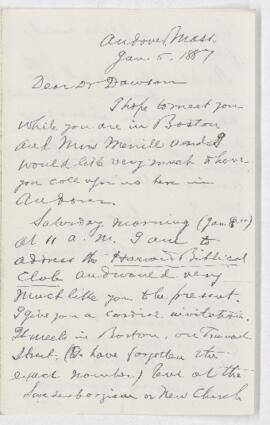 Andover, Mass.
Jan. 5. 1887
Dear Dr Dawson
I hope to meet you
while you are in Boston
and Mrs Merrill and I
would like very much to have
you call upon us here in
Andover.
Saturday morning (Jan 8th)
at 11 a. m. I am to
address the Harvard Biblical
Club and would very
much like you to be present.
I give you a cordial invitation.
It meets in Boston, on
Street. (I have forgotten the
exact number.) but at the
Swedenborgian or New Church